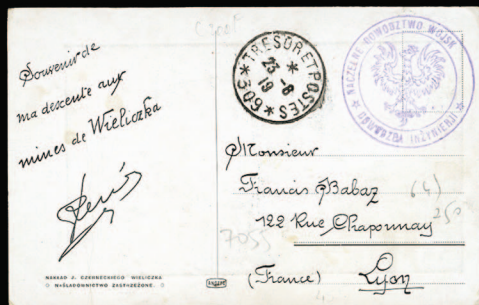 Souvenir de
ma descente aux
mines de Wieliczka
NAKŁAD J. CZERNECKIEGO WIELICZKA
NAŚLADOWNICTWO ZASTRZEŻONE.
* TRESOR ET POSTES * 603
23-8
19
NACZELNE DOWODZTWO WOJSK
INŻYNIERJI
Monsieur
Francis Babaz
122 Rue Chaponnay
(France) Lyon
(4)
250
7055